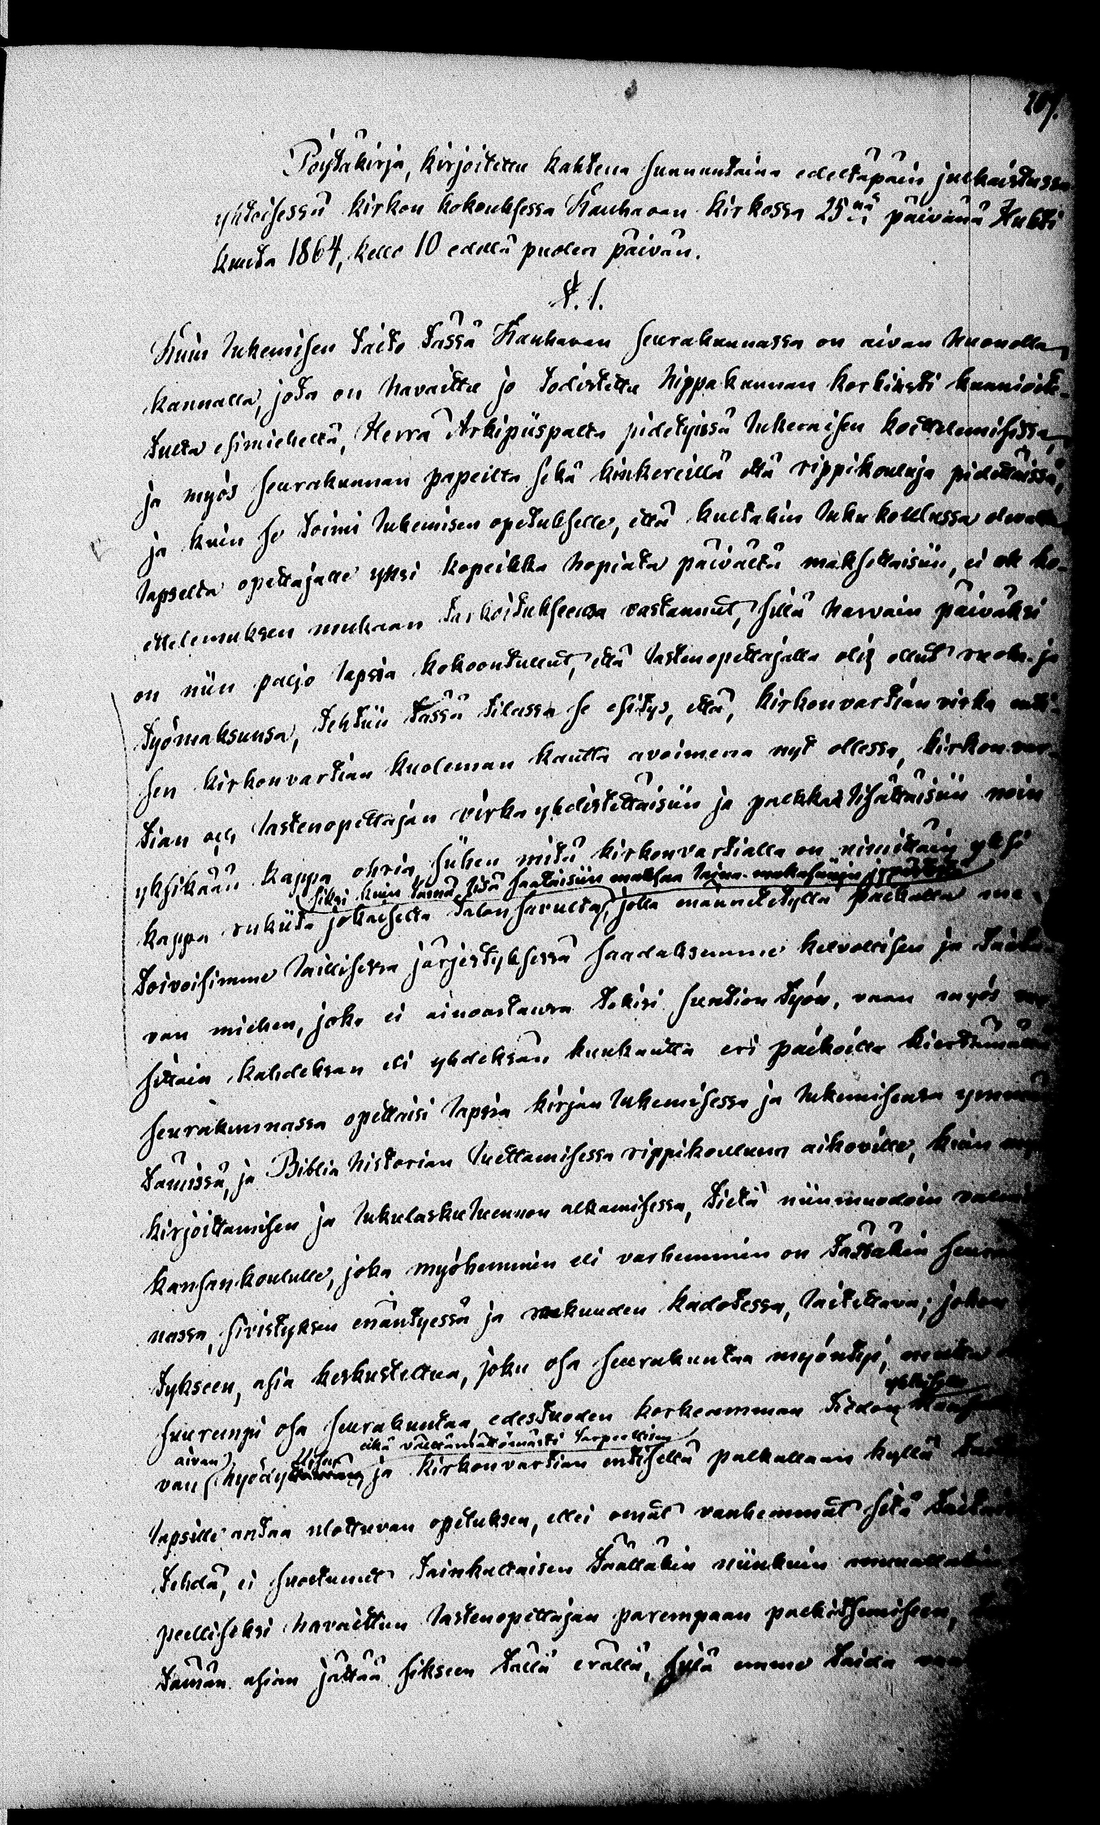 207.
Pöytäkirja, kirjoitettu kahtena sunnuntaina edeltäpäin julkaistussa
yhteisessä kirkon kokouksessa Kauhavan kirkossa 25nä päivänä Huhti
kuuta 1864, kello 10 edellä puolen päivän.
§. 1.
Kuin lukemisen taito tässä Kauhavan seurakunnassa on aivan huonolla
kannalla, jota on havaittu jo todistettu hippakunnan korkiasti kunnioite-
tulta esimieheltä, Herra Arkipiispalta pidetyissä lukemisen koettelemisissa,
ja myös seurakunnan papeilta sekä kinkereillä että rippikouluja pidettäissä,
ja kuin se toimi lukemisen opetukselle, että kultakin luku koulussa olevalta
lapselta opettajalle yksi kopeikka hopiata päivältä maksettaisiin, ei ole ko-
ettelemuksen mukaan tarkoitukseensa vastannut, sillä harvain päiväksi
on niin paljo lapsia kokoontullut, että lastenopettajalla olis ollut ruoka- ja
työmaksunsa, tehtiin tässä tilassa se esitys, että, kirkonvartian virka enti-
sen kirkonvartian kuoleman kautta avoimena nyt ollessa, kirkonvar-
tian och lastenopettajan virka yhdistettäisiin ja palkka lisättäisiin noin
yksikään kappa ohria, siihen mitä kirkonvartialla on nimittäin yksi
siksi kuin tämä lisä saataisiin maksaa laina-makasiinin
kappa rukiita jokaiselta talon savulta, jolla männetetyllä palkalla me
toivoisimme laillisessa järjestyksessä saadaksemme kelvollisen ja taita-
van miehen, joka ei ainoastansa tekisi suntion työn, vaan myös
sittain kahdeksan eli yhdeksän kuukautta eri paikoilla kiertämällä
seurakunnassa opettaisi lapsia kirjan lukemisessa ja lukemisensa ymmär-
tämissä, ja Biblia historian luettamisessa rippikouluun aikoville, kuin
kirjoittamisen ja lukulaskuluennon alkamisessa, tietä niinmuodoin
kansankoululle, joka myöhemmin eli varhemmin on tässäkin seura
nassa, sivistyksen enäntyessä ja raakuuden kadotessa, laitettava; johon
tykseen, asia keskusteltua, joku osa seurakuntaa myöntyi, mutta
yhteisesti
suurempi osa seurakuntaa, edestuoden korkeamman tiedon
aivan eikä välttämättömästi tarpeellisen
van hyödy ja kirkonvartian entisellä palkallaan kyllä
lapsille antaa ulottuvan opetuksen, ellei omat vanhemmat sitä
tehdä, ei suostunut tainkaltaisen täälläkin niinkuin muuallakin
peelliseksi havaittun lastenopettajan parempaan palkitsemiseen,
tämän asian jättää sikseen tällä erällä, sillä emme taida